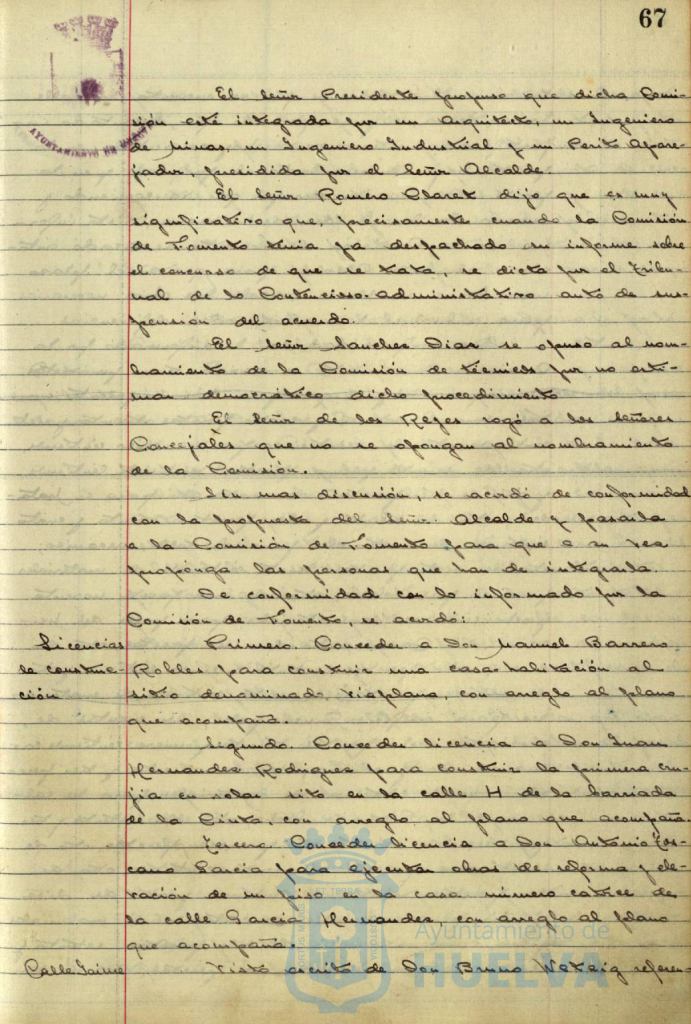 67
AYUNTAMIENTO DE HUELVA
El Señor Presidente propuso que dicha Comi-
sión esté integrada por un Arquitecto, un Ingeniero
de Minas, un Ingeniero Industrial y un Perito Apare-
jador, presidida por el Señor Alcalde.
El Señor Romero Claret dijo que es muy
significativo que, precisamente cuando la Comisión
de Fomento tenia ya despachado su informe sobre
el concurso de que se trata, se dicta por el Tribu-
nal de lo Contencioso-administrativo auto de sus-
pensión del acuerdo.
El Señor Sanchez Diaz se opuso al nom-
bramiento de la Comisión de técnicos por no esti-
mar democrático dicho procedimiento
El Señor de los Reyes rogó a los Señores
Concejales que no se opongan al nombramiento
de la Comisión.
Sin mas discusión, se acordó de conformidad
con la propuesta del Señor Alcalde y pasarla
a la Comisión de Fomento para que a su vez
proponga las personas que han de integrarla.
De conformidad con lo informado por la
Comisión de Fomento, se acordó:
Licencias de construc-ción
Primero. Conceder a Don Manuel Barrero
Robles para construir una casa-habitación al
sitio denominado Viaplana, con arreglo al plano
que acompaña.
Segundo. Conceder licencia a Don Juan
Hernandez Rodriguez para construir la primera cru-
jia en solar sito en la calle H de la barriada
de la Cinta, con arreglo al plano que acompaña.
Tercero. Conceder licencia a Don Antonio Tos-
cano Garcia para ejecutar obras de reforma y ele-
vación de un piso en la casa número catorce de
la calle Garcia Hernandez, con arreglo al plano
que acompaña.
Calle Jaime
Visto escrito de Don Bruno Wetzig referen-
Ayuntamiento de
HUELVA